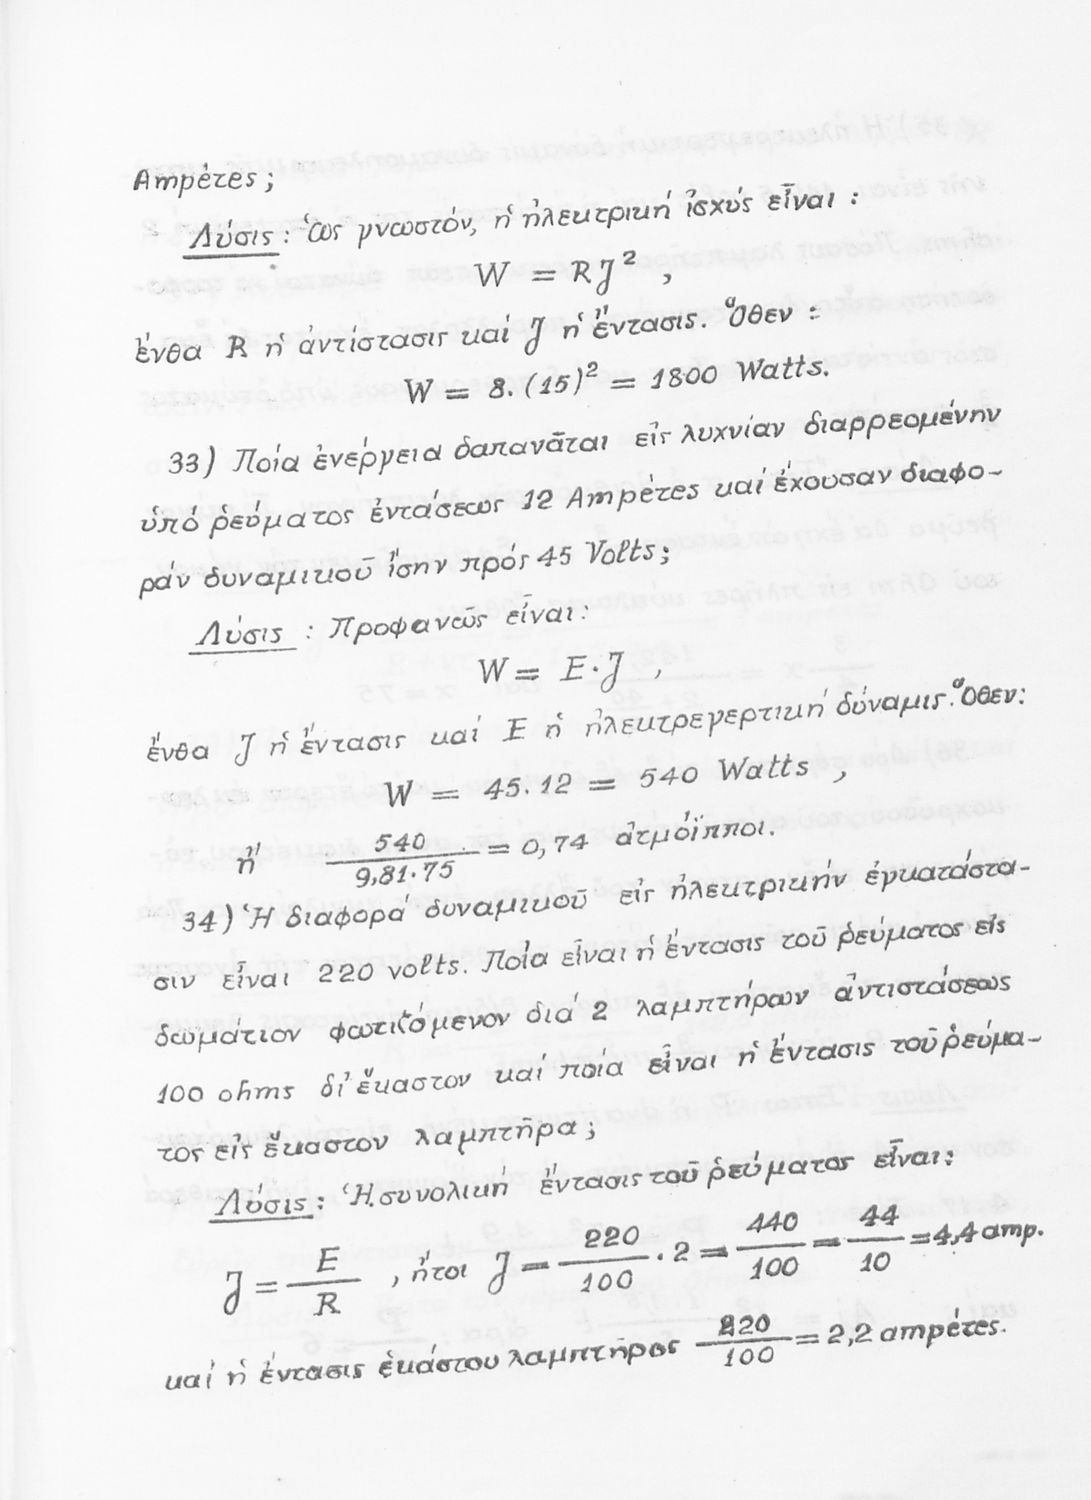 Ampères;
Λύσις: Ὡς γνωστόν, ἡ ἠλεκτρική ἰσχύς εἶναι :
W = RJ² ,
ἔνθα R ἡ ἀντίστασις καί J ἡ ἔντασις. Ὅθεν :
W = 8.(15)² = 1800 Watts.
33) Ποία ἐνέργεια δαπανᾶται εἰς λυχνίαν διαρρεομένην
ὑπό ῥεύματος ἐντάσεως 12 Ampères καί ἔχουσαν διαφο-
ράν δυναμικοῦ ἴσην πρός 45 Volts;
Λύσις : Προφανῶς εἶναι:
W = E·J ,
ἔνθα J ἡ ἔντασις καί E ἡ ἠλεκτρεγερτική δύναμις. Ὅθεν:
W = 45.12 = 540 Watts ,
ἤ 540/9,81·75 = 0,74 ἀτμόϊπποι.
34) Ἡ διαφορά δυναμικοῦ εἰς ἠλεκτρικήν ἐγκατάστα-
σιν εἶναι 220 volts. Ποία εἶναι ἡ ἔντασις τοῦ ῥεύματος εἰς
δωμάτιον φωτιζόμενον διά 2 λαμπτήρων ἀντιστάσεως
100 ohms δι' ἕκαστον καί ποία εἶναι ἡ ἔντασις τοῦ ῥεύμα-
τος εἰς ἕκαστον λαμπτῆρα;
Λύσις: Ἡ συνολική ἔντασις τοῦ ῥεύματος εἶναι:
J = E/R , ἤτοι J = 220/100 · 2 = 440/100 = 44/10 = 4,4 amp.
καί ἡ ἔντασις ἑκάστου λαμπτῆρος 220/100 = 2,2 ampères.